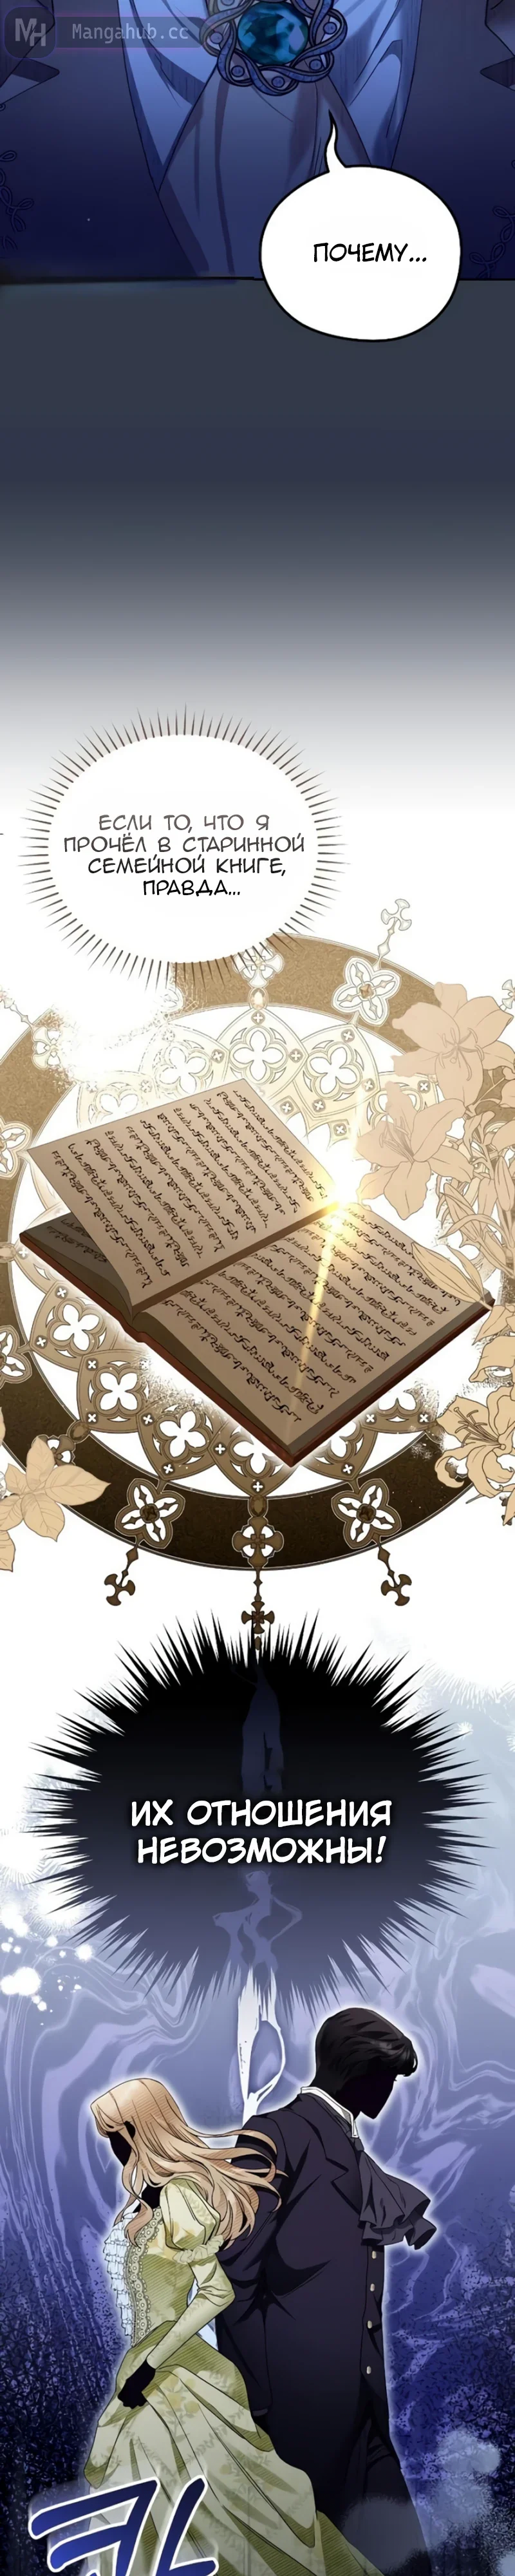 MH Mangahub.cc
ПОЧЕМУ...
ЕСЛИ ТО, ЧТО Я
ПРОЧЁЛ В СТАРИННОЙ
СЕМЕЙНОЙ КНИГЕ,
ПРАВДА...
ИХ ОТНОШЕНИЯ
НЕВОЗМОЖНЫ!